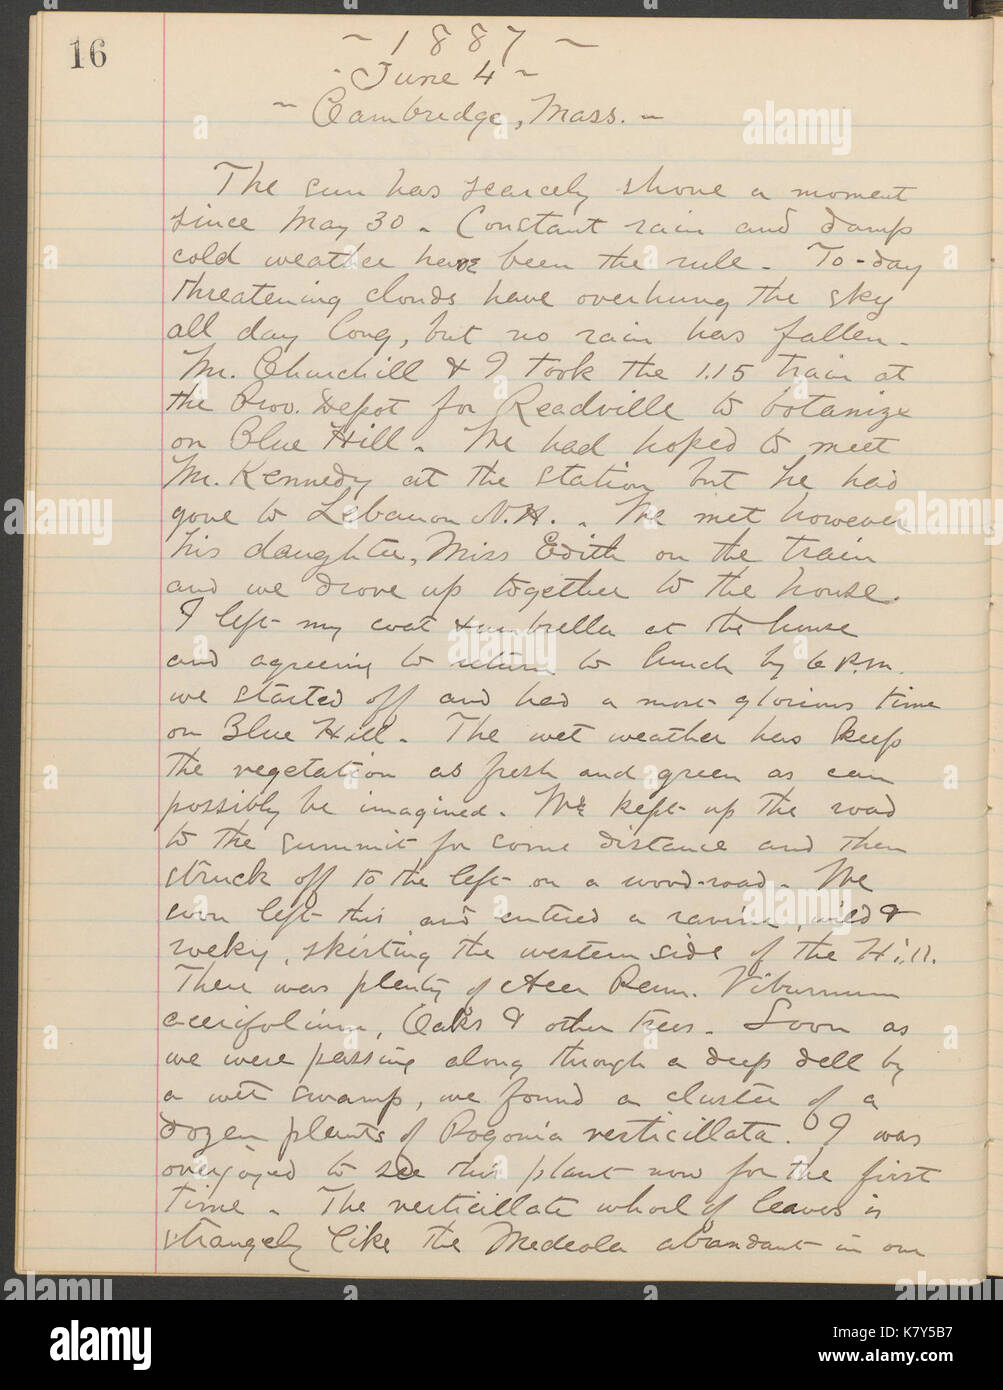 16
~ 1887 ~
June 4 ~
~ Cambridge, Mass. ~
The sun has scarcely shone a moment
since May 30. Constant rain and damp
cold weather have been the rule. To-day
threatening clouds have overhung the sky
all day long, but no rain has fallen.
Mr. Churchill & I took the 1.15 train at
the Prov. Depot for Readville to botanize
on Blue Hill. We had hoped to meet
Mr. Kennedy at the station but he had
gone to Lebanon N.H.. We met however
his daughter, Miss Edith on the train
and we drove up together to the house.
I left my coat & umbrella at the house
and agreeing to return to lunch by 6 P.M.
we started off and had a most glorious time
on Blue Hill. The wet weather has keep
the vegetation as fresh and green as can
possibly be imagined. We kept up the road
to the summit for some distance and then
struck off to the left on a wood-road. We
soon left this and entered a ravine, wild &
rocky, skirting the western side of the Hill.
There was plenty of Acer Penn. Viburnum
acerifolium, Oaks & other trees. Soon as
we were passing along through a deep dell by
a wet swamp, we found a cluster of a
dozen plants of Pogonia verticillata. I was
overjoyed to see this plant now for the first
time. The verticillate whorl of leaves is
strangely like the Medeola abundant in our
alamy
alamy
K7Y5B7
www.alamy.com